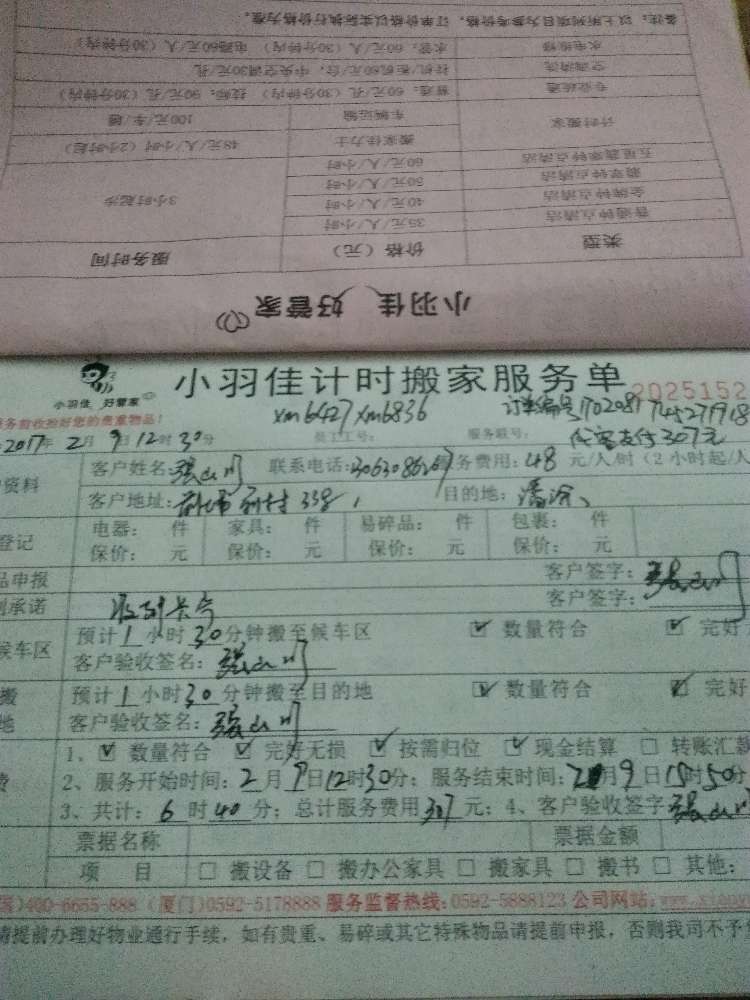 小羽佳 好管家
类型 价格（元） 服务时间
普通钟点清洁 35元/人/小时 3小时起步
金牌钟点清洁 40元/人/小时
翡翠钟点清洁 50元/人/小时
五星翡翠钟点清洁 60元/人/小时
计时搬家 搬家佳力士 48元/人/小时（2小时起）
车辆运输 100元/车/趟
专业疏通 普通：60元/孔（30分钟内） 特殊：90元/孔（30分钟内）
空调清洗 挂机/柜机60元/台，中央空调30元/孔
水电维修 水管：60元/人（30分钟内） 电路60元/人（30分钟内）
备注：以上所列项目为参考价格，订单价格以实际执行价格为准。
小羽佳 好管家
小羽佳计时搬家服务单 2025152
xm6427 xm6836
服务前收拾好您的贵重物品！ 员工工号： 服务账号： 订单编号
2017年 2月 9日 12时 30分 代客支付307元
客户姓名：张山川 联系电话： 服务费用：48 元/人/时（2小时起/人
客户地址： 338 目的地：
资料
电器： 件 家具： 件 易碎品： 件 包裹： 件
登记
保价： 元 保价： 元 保价： 元 保价： 元
品申报 客户签字：张山川
承诺 客户签字：
候车区 预计1小时30分钟搬至候车区 数量符合 完好
客户验收签名：张山川
搬 预计1小时30分钟搬至目的地 数量符合 完好
地 客户验收签名：张山川
1、 数量符合 完好无损 按需归位 现金结算 转账汇款
费 2、服务开始时间：2月9日12时30分；服务结束时间：2月9日 时50分
3、共计：6时40分；总计服务费用307元；4、客户验收签字 张山川
票据名称 票据金额
项 目 搬设备 搬办公家具 搬家具 搬书 其他：
国)400-6655-888 (厦门)0592-5178888 服务监督热线:0592-5888123 公司网站:
请提前办理好物业通行手续，如有贵重、易碎或其它特殊物品请提前申报，否则我司不予